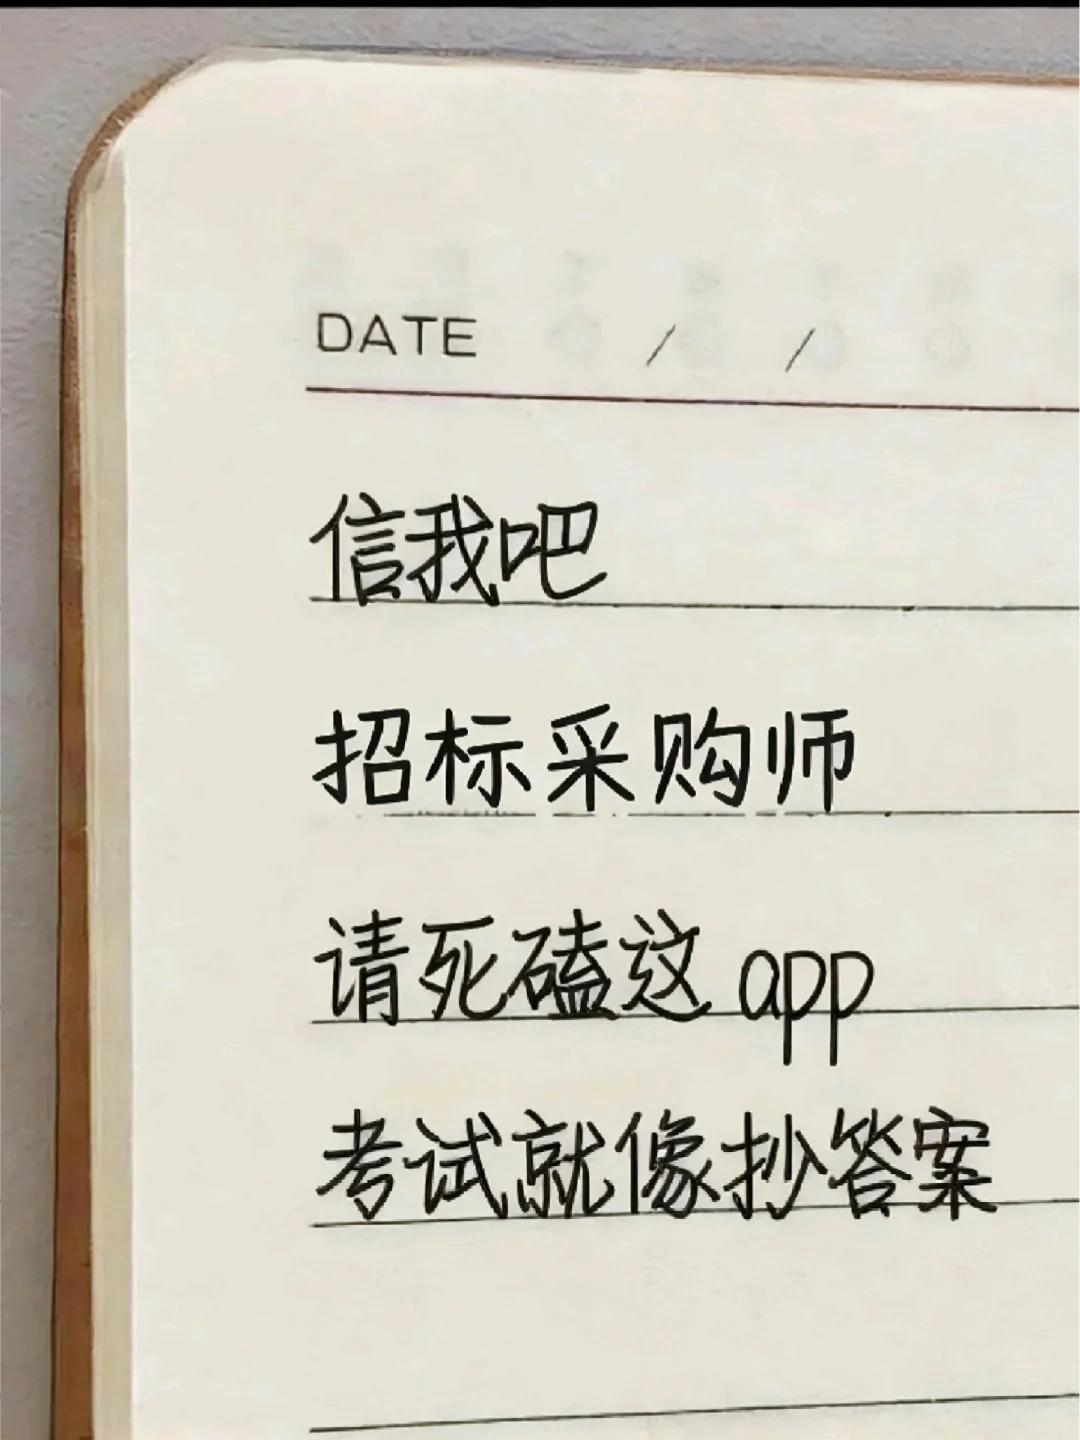 DATE / /
信我吧
招标采购师
请死磕这app
考试就像抄答案